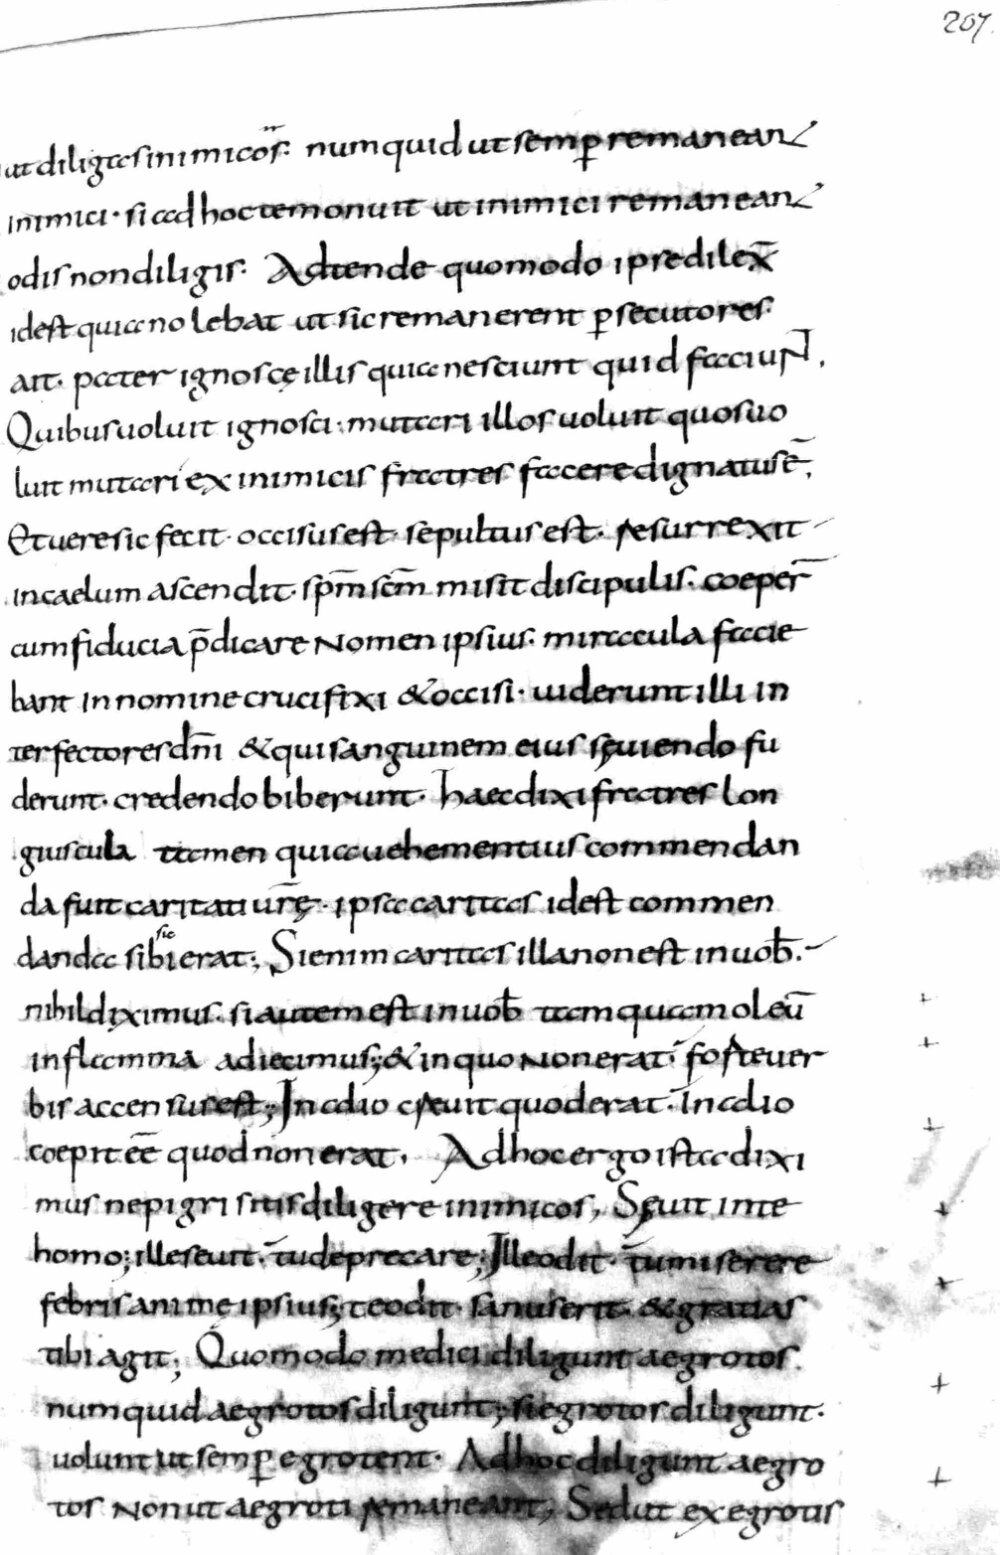 207.
ut diligres inimicos̄. numquid ut semꝑ remaneant
inimici. si ad hoc te monuit ut inimici remaneant
odis non diligis. Adtende quomodo ipse dilex̄
id est quia nolebat ut sic remanerent ꝑsecutores.
ait. pater ignosce illis quia nesciunt quid faciunt.
Quibus uoluit ignosci. mutari illos uoluit quos uo
luit mutari ex inimicis fratres facere dignatus ē;
Et uere sic fecit. occisus est. sepultus est. resurrexit
in caelum ascendit. sp̄m sc̄m misit discipulis. coeper̄
cum fiducia p̄dicare nomen ipsius. miracula facie
bant in nomine crucifixi & occisi. uiderunt illi in
terfectores dn̄i & qui sanguinem eius sęuiendo fu
derunt. credendo biberunt. haec dixi fratres lon
giuscula tamen quia uehementius commendan
da fuit caritati ur̄ę. ipsa caritas id est commen
sic
danda sibi erat; Si enim caritas illa non est in uob̄.
nihil diximus. si autem est in uob̄ tamquam oleū
in flamma adiecimus; & in quo non erat. forte uer
bis accensus est; In alio creuit quod erat. In alio
coepit eē quod non erat. Ad hoc ergo ista dixi
mus ne pigri sitis diligere inimicos, Sęuit in te
homo; ille seuit. tu deprecare; Ille odit. tu miserere
febris anime ipsius; te odit. sanus erit. & gratias
tibi agit; Quomodo medici diligunt aegrotos.
numquid aegrotos diligunt; si egrotos diligunt.
uolunt ut semꝑ egrotent. Ad hoc diligunt aegro
tos non ut aegroti remaneant, Sed ut ex egrotis